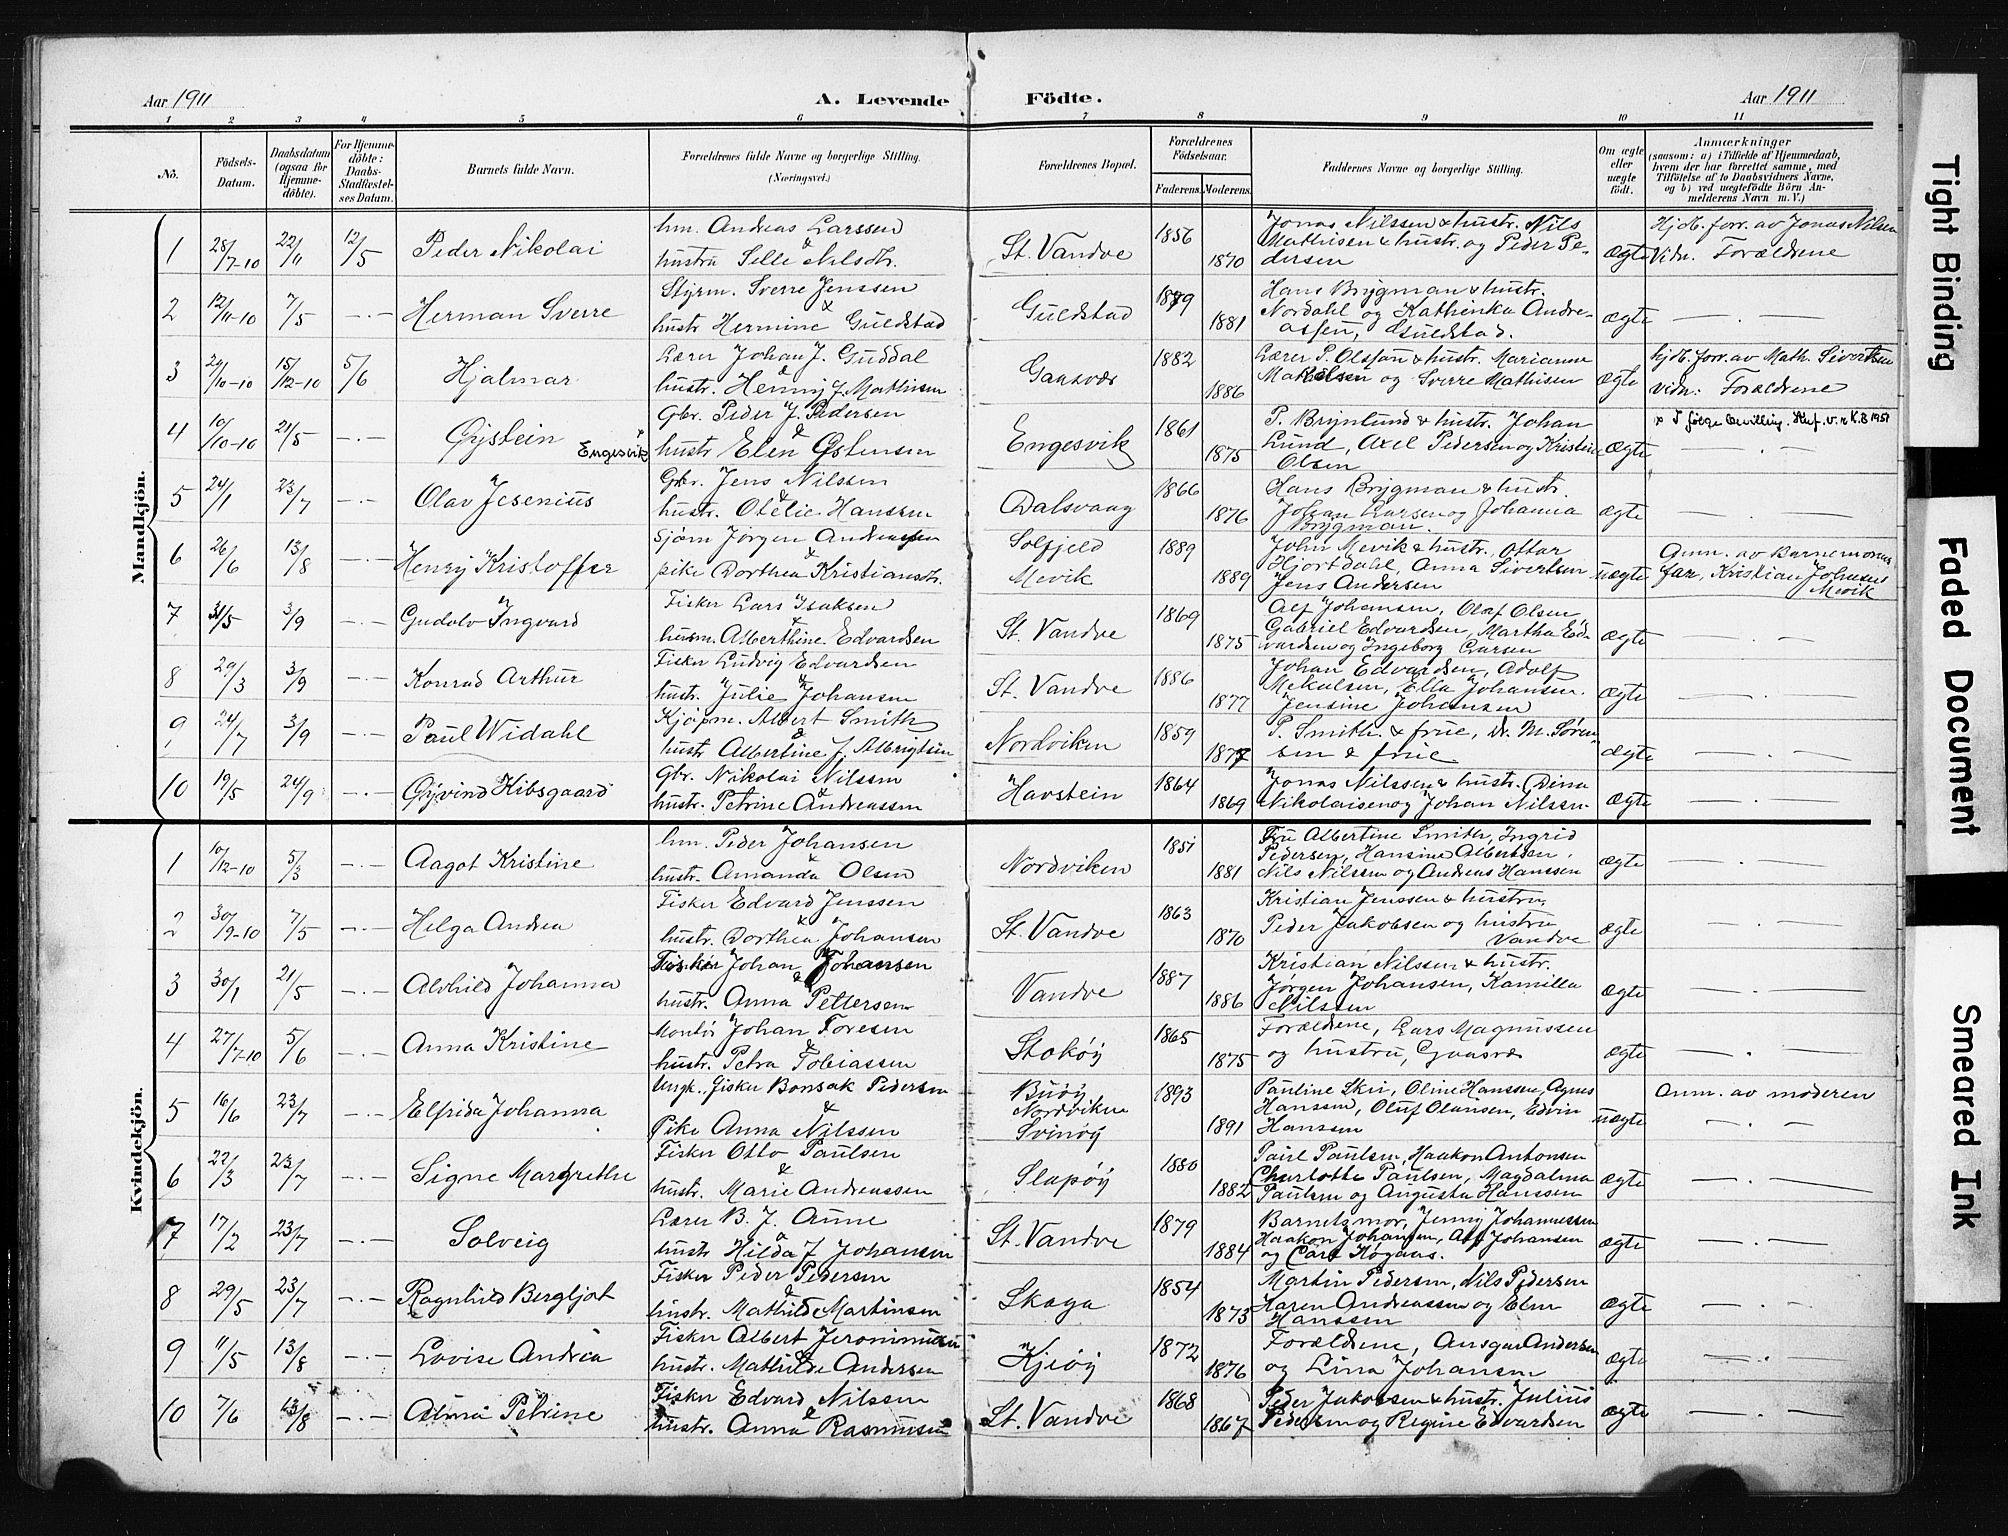 Aar 1911
A. Levende Födte.
Aar 1911
1 2 3 4 5 6 7 8 9 10 11
No.
Födsels-Datum.
Daabsdatum (ogsaa for Hjemmedöbte).
For Hjemmedöbte: Daabs-Stadfæstelses Datum.
Barnets fulde Navn.
Forældrenes fulde Navne og borgerlige Stilling. (Næringsvei.)
Forældrenes Bopæl.
Forældrenes Födselsaar.
Faderens. Moderens.
Faddernes Navne og borgerlige Stilling.
Om ægte eller uægte födt.
Anmærkninger
(saasom: a) i Tilfælde af Hjemmedaab, hvem der har forrettet samme, med Tilföielse af to Daabsvidners Navne, og b) ved uægtefödte Börn Anmelderens Navn m. V.)
Mandkjön.
1 28/7-10 22/11 12/5 Peder Nikolai
hm. Andreas Larssen & hustru Selle Nilsdtr.
St. Vandve 1856 1870
Jonas Nilssen & hustr. Nils
Mathisen & hustr. og Peder Pe-
dersen
ægte
Hjdb. forr. av Jonas Nilsen
Vidn. Forældrene
2 12/11-10 7/5 -.- Herman Sverre
Styrm. Sverre Jenssen & hustr Hermine Guldstad
Guldstad 1879 1881
Hans Brygman & hustr.
Nordahl og Kathinka Andre-
assen, Guldstad.
ægte - . -
3 24/10-10 15/12-10 5/6 Hjalmar
Lærer Johan J. Guddal & hustr. Henny J. Mathisen
Gaasvær 1882 1886
Lærer P. Olsson & hustr. Marianne
Mathisen og Sverre Mathisen
ægte
hjdb. forr. av Math. Sivertsen
vidn: Forældrene
4 10/10-10 21/5 -.- Øystein x Engesvik
Gbr. Peder J. Pedersen & hustr Elen Østensen
Engesvik 1861 1875
P. Brynlund & hustr. Johan
Lund, Axel Pedersen og Kristine
Olsen
ægte
x I følge bevilling. Skr. v. n K.B 1951
- . -
5 24/1 23/7 -.- Olav Jesenius
Gbr. Jens Nilssen & hustr. Otelie Hanssen
Dalsvaag 1866 1876
Hans Brygman & hustr.
Johan Larsen og Johanna
Brygman.
ægte - . -
6 26/6 13/8 Henry Kristoffer
Sjøm Jørgen Andreassen & pike Dorthea Kristiansdtr.
Solfjeld
Mevik 1889 1889
John Mevik & hustr, Ottar
Hjortdahl, Anna Sivertsen
Jens Andersen
uægte
Anm. av Barnemorens
far, Kristian Johnsen
Mevik
7 31/5 3/9 Gudolv Ingvard
Fisker Lars Isaksen & husm. Alberthine Edvardsen
St. Vandve 1869 1875
Alf Johansen, Olaf Olsen
Gabriel Edvardsen, Martha Ed-
vardsen og Ingeborg Larsen
ægte - . -
8 29/3 3/9 -.- Konrad Arthur
Fisker Ludvig Edvardsen & hustr. Julie Johansen
St. Vandve 1886 1877
Johan Edvardsen, Adolf
Mekalsen, Ella Johansen.
Jensine Johansen
ægte - . -
9 24/7 3/9 -.- Paul Widahl
Kjøpm. Albert Smith & hustr Albertine J. Albrigtsen
Nordviken 1859 1877
P. Smith. & frue, Dr. M. Søren-
sen & frue
ægte - . -
10 19/5 24/9 Øyvind Hibsgaard
Gbr. Nikolai Nilssen & hustr. Petrine Andreassen
Havstein 1864 1869
Jonas Nilssen & hustr. Dina
Nikolaisen og Johan Nilssen.
ægte - . -
Kvindekjön.
1 10/12-10 5/3 -.- Aagot Kristine
hm. Peder Johansen & hustr. Amanda Olsen
Nordviken 1851 1881
Fru Albertine Smith, Ingrid
Pedersen, Hansine Albertsen,
Nils Nilssen og Andreas Hanssen
ægte - . -
2 30/9-10 7/5 -.- Helga Andrea
Fisker Edvard Jenssen & hustr. Dorthea Johansen
St. Vandve 1863 1870
Kristian Jenssen & hustru,
Peder Jakobsen og hustru
Vandve
ægte - . -
3 30/1 21/5 -.- Alvhild Johanna
Fisker Johan Johansen & hustr. Anna Pettersen
Vandve 1887 1886
Kristian Nilssen & hustr.
Jørgen Johansen, Kamilla
Nilssen
ægte - . -
4 27/7-10 5/6 -.- Anna Kristine
Montør Johan Foresen & hustr. Petra Tobiassen
Stokøy 1865 1875
Forældrene, Lars Magnussen
og hustru, Gaasvæ
ægte - . -
5 16/6 23/7 -.- Elfrida Johanna
Ungk. fisker Bonsak Pedersen & Pike Anna Nilssen
Buøy
Nordviken
Svinøy 1893 1891
Pauline Skei, Oline Hanssen, Agnes
Hanssen, Oluf Olausen, Edvin
Hanssen
uægte
Anm. av moderen
- . -
6 22/3 23/7 -.- Signe Margrethe
Fisker Otto Paulsen & hustr. Marie Andreassen
Slapøy 1880 1882
Paul Paulsen, Haakon Antonsen
Charlotte Paulsen, Magdalena
Paulsen og Augusta Hanssen
ægte - . -
7 17/2 23/7 -.- Solveig
Lærer B. J. Aune & hustr Hilda J Johansen
St. Vandve 1879 1884
Barnets mor, Jenny Johannessen
Haakon Johansen, Alf Johansen
og Carl Høgaas.
ægte - . -
8 29/5 23/7 -.- Ragnhild Bergljot
Fisker Peder Pedersen & hustr. Mathilde Martinsen
Skaga 1854 1873
Martin Pedersen, Nils Pedersen
Karen Andreassen og Elen
Hanssen
ægte - . -
9 11/5 13/8 -.- Lovise Andrea
Fisker Albert Jeronimussen & hustr. Mathilde Andersen
Kjeøy 1872 1876
Forældrene, Ansgar Andersen
og Lina Johansen
ægte - . -
10 7/6 13/8 -.- Alma Petrine
Fisker Edvard Nilssen & hustr. Anna Rasmussen
St. Vandve 1868 1867
Peder Jakobsen & hustr. Julius
Pedersen og Regine Edvardsen
ægte - . -
Tight Binding
Faded Document
Smeared Ink